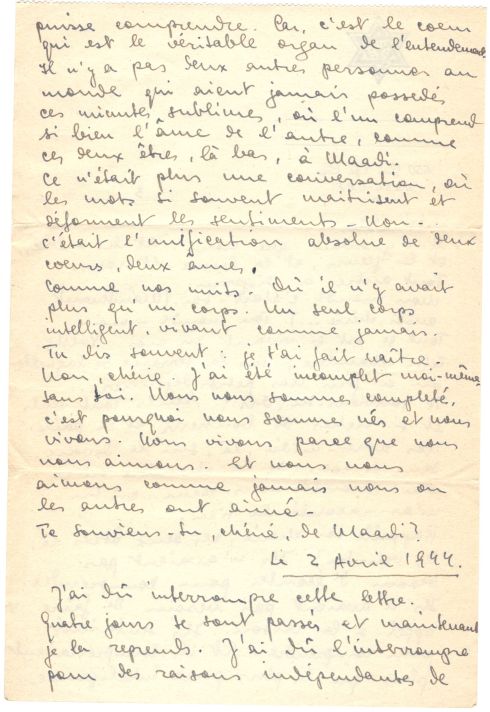 puisse comprendre. Car, c'est le coeur
qui est le véritable organ de l'entendement.
Il n'y a pas deux autres personnes au
monde qui aient jamais possedés
ces minutes sublimes, où l'un comprend
si bien l'âme de l'autre, comme
ces deux êtres, là bas, à Maadi.
Ce n'était plus une conversation, où
les mots si souvent maitrisent et
déforment les sentiments - Non -
c'était l'unification absolue de deux
coeurs, deux âmes.
Comme nos nuits. Où il n'y avait
plus qu'un corps. Un seul corps
intelligent, vivant comme jamais.
Tu dis souvent : je t'ai fait naître -
Non, chérie. J'ai été incomplet moi-même
sans toi. Nous nous sommes completé,
c'est pourquoi nous sommes nés et nous
vivons. Nous vivons parce que nous
nous aimons. Et nous nous
aimons comme jamais nous ou
les autres ont aimé -
Te souviens-tu, chérie, de Maadi?
Le 2 Avril 1944.
J'ai dû interrompre cette lettre.
Quatre jours se sont passés et maintenant
je la reprends. J'ai dû l'interrompre
pour des raisons indépendantes de